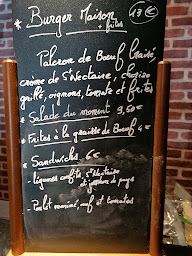 * Burger Maison 13 €
+ frites
Paleron de Boeuf braisé
crème de St Nectaire, chorizo
grillé, oignons, tomate et frites
* Salade du moment 9,50€
* Frites à la graisse de Boeuf 4€
* Sandwichs 6€
- légumes confits, St Nectaire
et jambon de pays
- Poulet mariné, oeuf et tomates